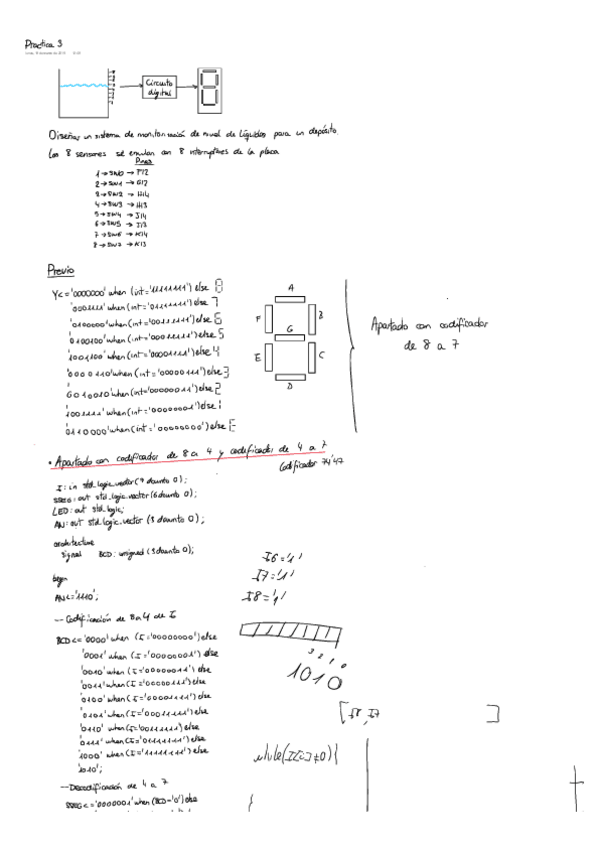 Práctica 3
Circuito
digital
Diseñar un sistema de monitorización de nivel de líquidos para un depósito.
Los 8 sensores se envían con 8 interruptores de la placa
Pines
1 → SW0 → F12
2 → SW1 → G12
3 → SW2 → H14
4 → SW3 → H13
5 → SW4 → J14
6 → SW5 → J13
7 → SW6 → K14
8 → SW7 → K13
Previo
Y<= '0000000' when (int='11111111') else 8
'0001111' when (int='01111111') else 7
'0100000' when (int='00111111') else 6
'0100100' when (int='00011111') else 5
'1001100' when (int='00001111') else 4
'0000110' when (int='00000111') else 3
'0010010' when (int='00000011') else 2
'1001111' when (int='00000001') else 1
'0110000' when (int='00000000') else E
A
F
B
G
E
C
D
Apartado con codificador
de 8 a 7
• Apartado con codificador de 8 a 4 y codificador de 4 a 7
Codificador 74'47
I: in std_logic_vector (7 downto 0);
SSEG: out std_logic_vector (6 downto 0);
LED: out std_logic;
AN: out std_logic_vector (3 downto 0);
architecture
signal BCD: unsigned (3 downto 0);
begin
AN<='1110';
I6='1'
I7='1'
I8='1'
-- Codificación de 8 a 4 de I
BCD <= '0000' when (I='00000000') else
'0001' when (I='00000001') else
'0010' when (I='00000011') else
'0011' when (I='00000111') else
'0100' when (I='00001111') else
'0101' when (I='00011111') else
'0110' when (I='00111111') else
'0111' when (I='01111111') else
'1000' when (I='11111111') else
'1010';
3 2 1 0
1010
[I8 I7 ]
while(I[i]≠0){
}
-- Decodificación de 4 a 7
SSEG<='0000001' when (BCD='0') else